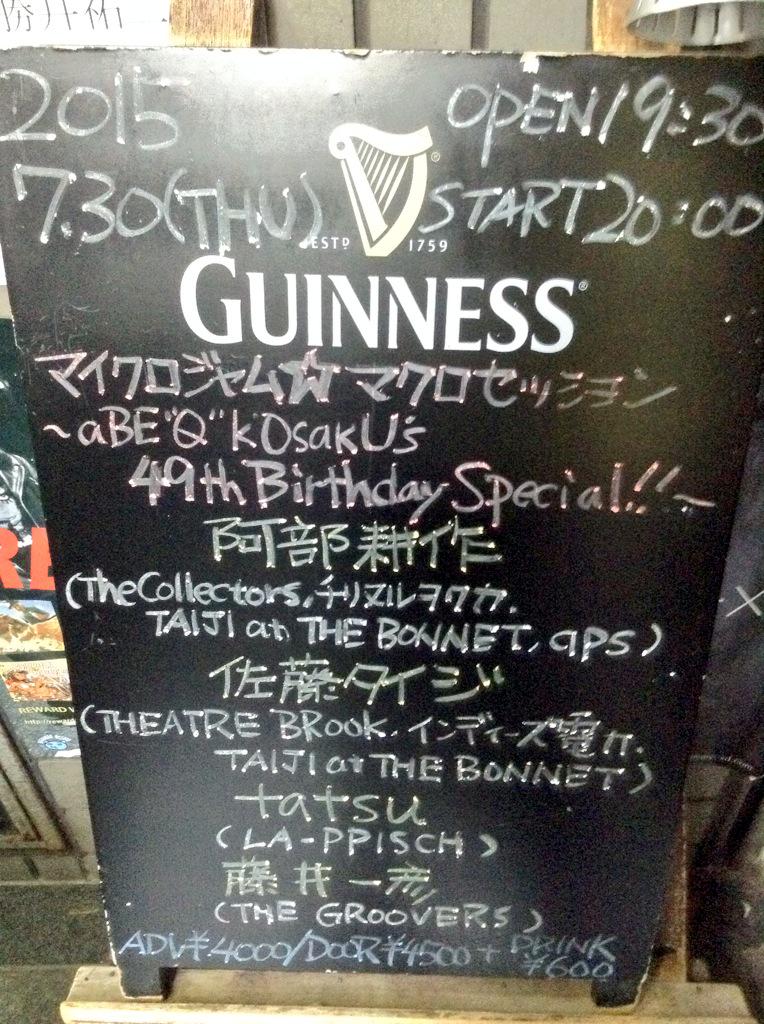 2015 OPEN19:30
7.30(THU) START20:00
ESTD 1759
GUINNESS®
マイクロジャム☆マクロセッション
~aBE"Q"kOsakU's
49th Birthday Special!!~
阿部耕作
(TheCollectors,チリヌルヲワカ.
TAIJI at THE BONNET, qps)
佐藤タイジ
(THEATRE BROOK.インディーズ電力.
TAIJI at THE BONNET)
tatsu
(LA-PPISCH)
藤井一彦
(THE GROOVERS)
ADV¥4000/DOOR¥4500+DRINK
¥600
REWARD